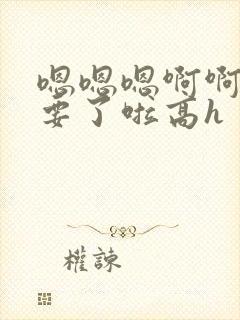 嗯嗯嗯啊啊
要了啦高h
權諫